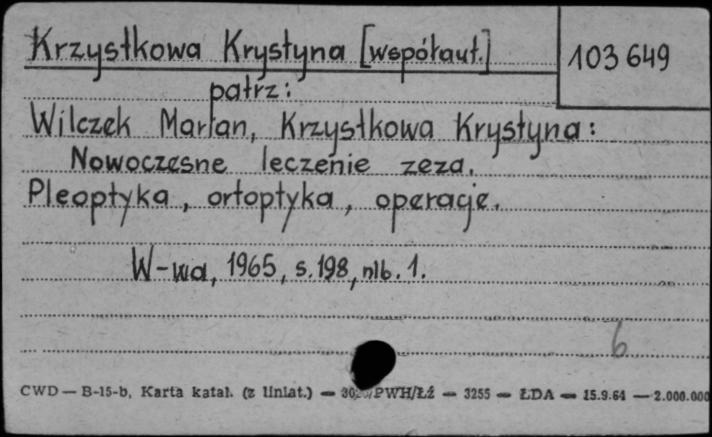 Krzystkowa Krystyna [współaut.]
103 649
patrz:
Wilczek Marian, Krzystkowa Krystyna:
Nowoczesne leczenie zeza.
Pleoptyka, ortoptyka, operacje.
W-wa, 1965, s. 198, nlb. 1.
6
CWD — B-15-b, Karta katal. (z liniat.) — PWH/Łź — 3255 — ŁDA — 15.9.64 — 2.000.000